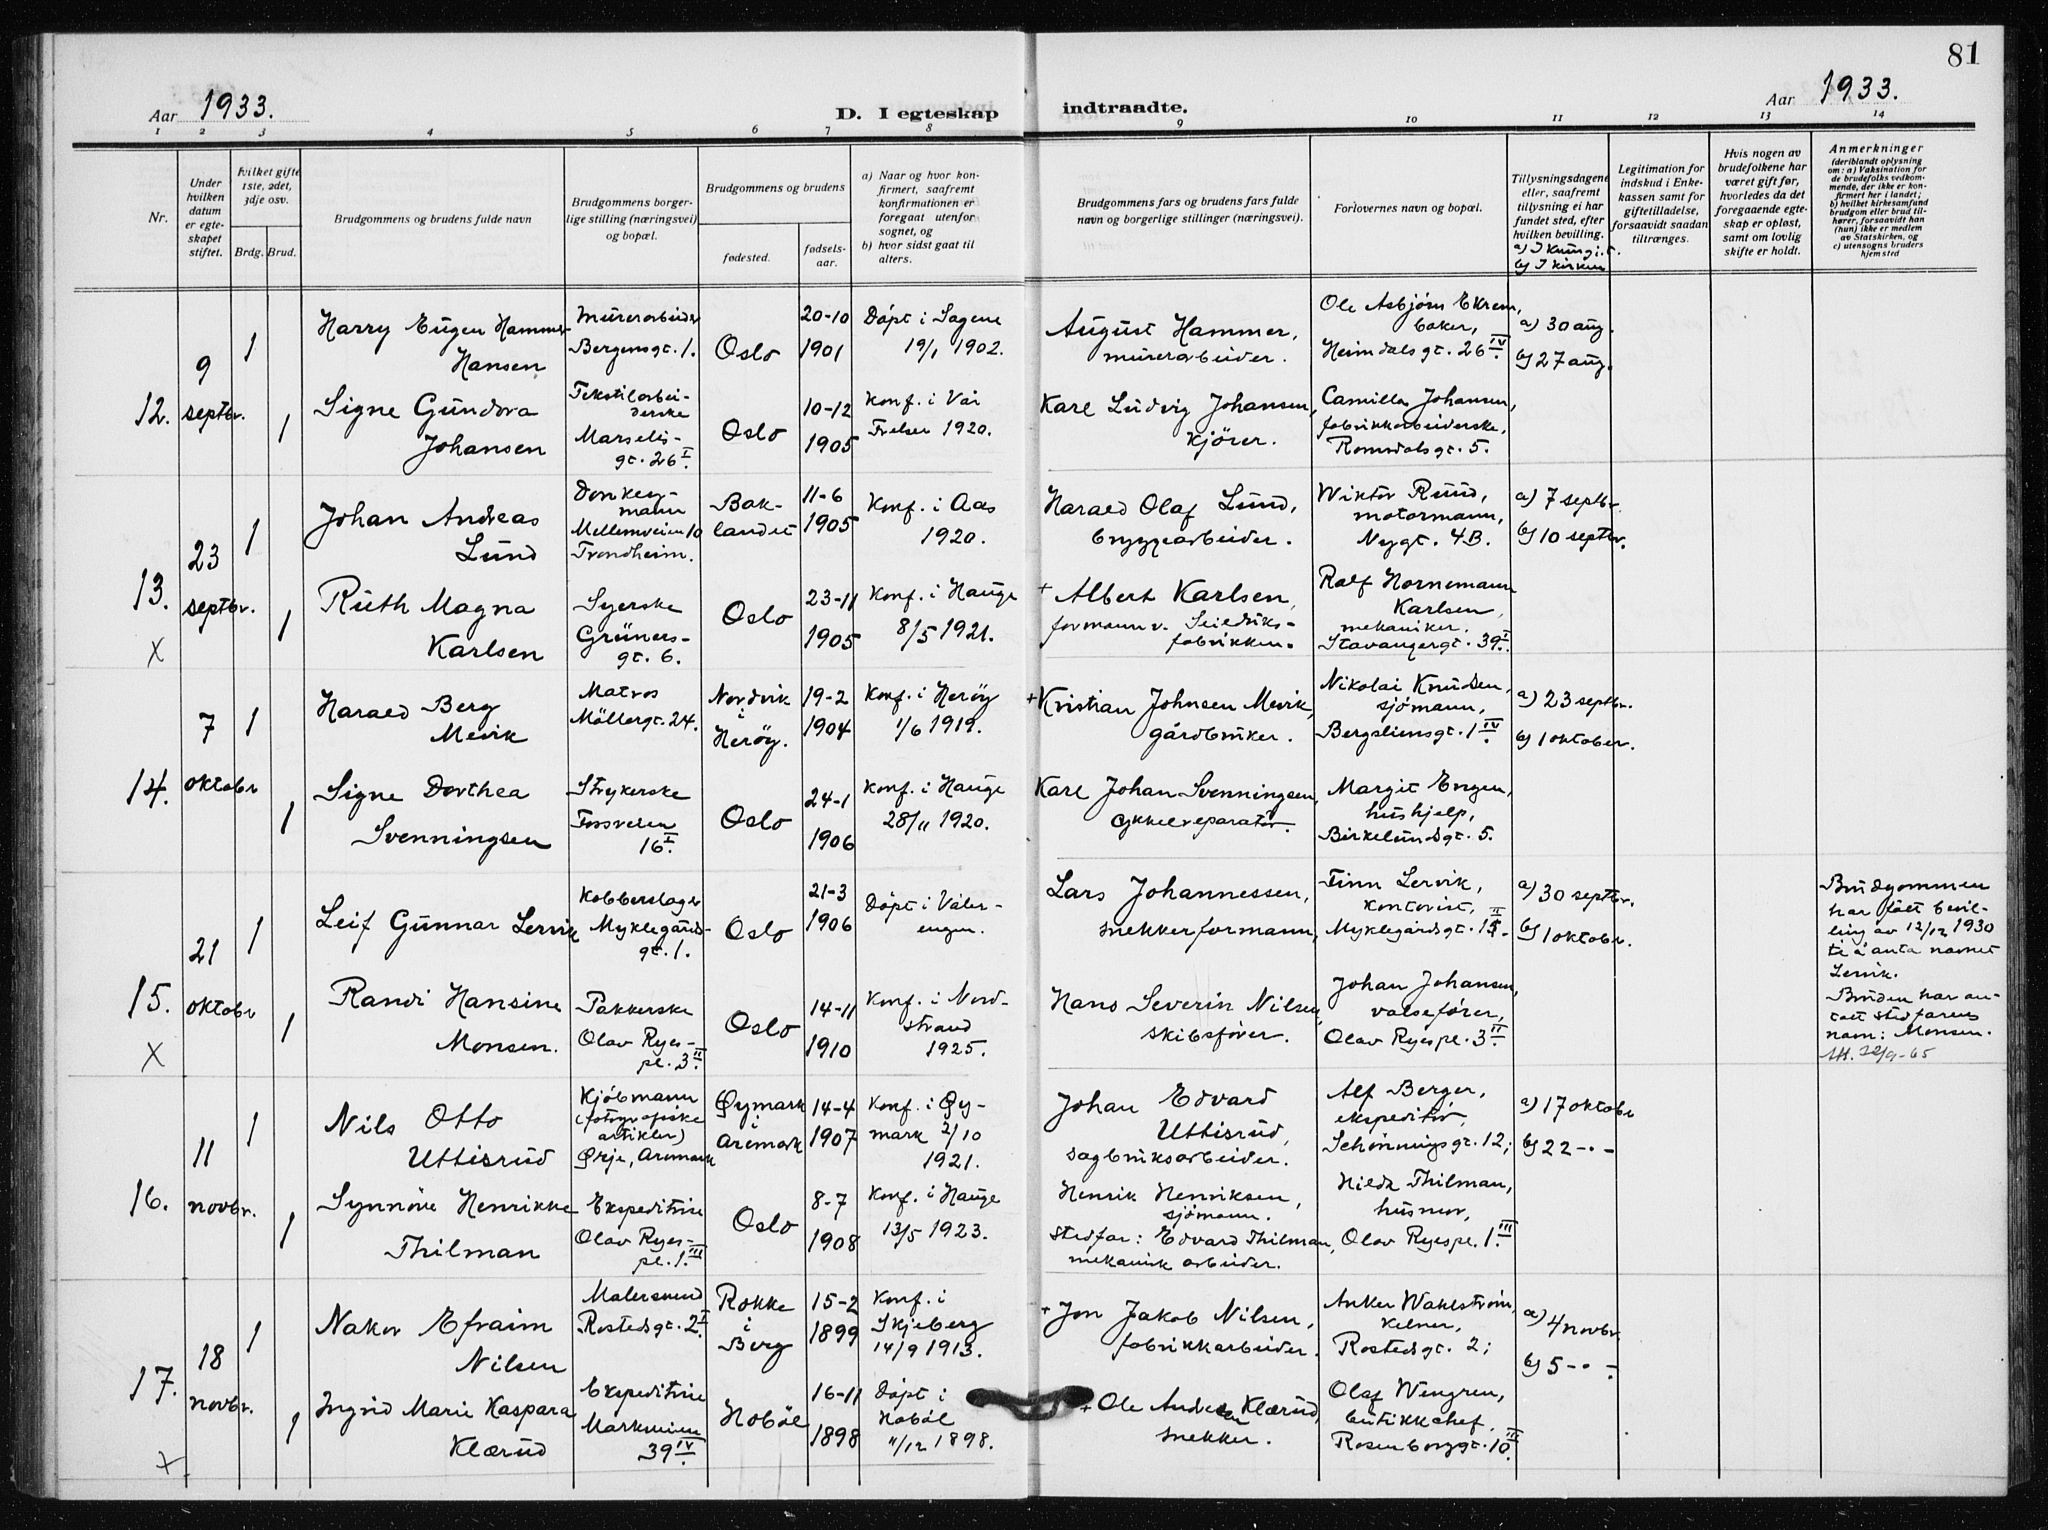 81
Aar 1933.
D. I egteskap
indtraadte.
Aar 1933.
1 2 3 4 5 6 7 8 9 10 11 12 13 14
Nr.
Under hvilken datum er egteskapet stiftet.
hvilket gifte 1ste, 2det, 3dje osv.
Brdg. Brud.
Brudgommens og brudens fulde navn
Brudgommens borgerlige stilling (næringsvei) og bopæl.
Brudgommens og brudens
fødested.
fødselsaar.
a) Naar og hvor konfirmert, saafremt konfirmationen er foregaat utenfor sognet, og
b) hvor sidst gaat til alters.
Brudgommens fars og brudens fars fulde navn og borgerlige stillinger (næringsvei).
Forlovernes navn og bopæl.
Tillysningsdagene eller, saafremt tillysning ei har fundet sted, efter hvilken bevilling.
b) I kirken
Legitimation for indskud i Enkekassen samt for giftetilladelse, forsaavidt saadan tiltrænges.
Hvis nogen av brudefolkene har været gift før, hvorledes da det foregaaende egteskap er opløst, samt om lovlig skifte er holdt.
Anmerkninger
(deriblandt oplysning om: a) Vaksination for de brudefolks vedkommende, der ikke er konfirmert her i landet; b) hvilket kirkesamfund brudgom eller brud tilhører, forsaavidt han (hun) ikke er medlem av Statskirken, og c) utensogns bruders hjemsted
12.
9
septbr.
1
Harry Eugen Hammer
Hansen
Murerarbeider
Bergensgt. 1.
Oslo
20-10
1901
Døpt i Sagene
19/1 1902.
August Hammer,
murerarbeider.
Ole Asbjørn Ekrem,
baker,
Heimdalsgt. 26 IV.
a) 30 aug.
b) 27 aug.
1
Signe Gundora
Johansen
Tekstilarbei-
derske
Marselis-
gt. 26 I.
Oslo
10-12
1905
Konf. i Vår
Frelser 1920.
Karl Ludvig Johansen,
kjører.
Camilla Johansen,
fabrikkarbeiderske,
Romsdalsgt. 5.
13.
X
23
septbr.
1
Johan Andreas
Lund
Donkey-
mann
Mellemveien 10
Trondheim.
Bak-
landet
11-6
1905
Konf. i Aas
1920.
Harald Olaf Lund,
bryggearbeider.
Wiktor Ruud,
motormann,
Nygt. 4B.
a) 7 septbr.
b) 10 septbr.
1
Ruth Magna
Karlsen
Syerske
Grüners-
gt. 6.
Oslo
23-11
1905
Konf. i Hauge
8/5 1921.
+ Albert Karlsen,
formann v. Seildriks-
fabrikken.
Ralf Hornemann
Karlsen,
mekaniker,
Stavangergt. 39 I.
14.
7
oktobr
1
Harald Berg
Mevik
Matros
Møllergt. 24.
Nordvik
i
Herøy.
19-2
1904
Konf. i Herøy
1/6 1919.
+ Kristian Johnsen Mevik,
gårdbruker.
Nikolai Knudsen,
sjømann,
Bergsliensgt. 1 IV.
a) 23 septbr.
b) 1 oktober.
1
Signe Dorthea
Svenningsen
Strykerske
Fossveien
16 I.
Oslo
24-1
1906
Konf. i Hauge
28/11 1920.
Karl Johan Svenningsen,
cykkelreparatør.
Margit Engen,
hushjelp,
Birkelundsgt. 5.
15.
X
21
oktobr
1
Leif Gunnar Lervik
Kobberslager
Myklegårds-
gt. 1.
Oslo
21-3
1906
Døpt i Våler-
engen.
Lars Johannessen,
snekkerformann,
Finn Lervik,
kontorist,
Myklegårdsgt. 1 II.
a) 30 septbr.
b) 1 oktobr.
Brudgommen
har fått bevil-
ling av 12/12 1930
til å anta navnet
Lervik.
1
Randi Hansine
Monsen.
Pakkerske
Olav Ryes-
pl. 3 II.
Oslo
14-11
1910
Konf. i Nord-
strand
1925.
Hans Severin Nilsen,
skibsfører.
Johan Johansen,
valsefører,
Olav Ryespl. 3 II.
Bruden har an-
tatt stedfarens
navn: Monsen.
16.
11
novbr.
1
Nils Otto
Uttisrud
Kjøbmann
(fotografiske
artikler)
Ørje, Aremark
Øymark
i
Aremark
14-4
1907
Konf. i Øy-
mark 2/10
1921.
Johan Edvard
Uttisrud,
sagbruksarbeider.
Alf Berger,
ekspeditør,
Schønningsgt. 12;
a) 17 oktobr
b) 22 - " -
1
Synnøve Henrikke
Thilman
Ekspeditrise
Olav Ryes-
pl. 1. III
Oslo
8-7
1908
Konf. i Hauge
13/5 1923.
Henrik Henriksen,
sjømann.
Stedfar: Edvard Thilman,
mekanisk arbeider.
Hilda Thilman,
husmor,
Olav Ryespl. 1. III
17.
X
18
novbr.
1
Nakor Efraim
Nilsen
Malersvend
Rostedsgt. 2 I.
Rokke
i
Berg
15-2
1899
Konf. i
Skjeberg
14/9 1913.
+ Jon Jakob Nilsen,
fabrikkarbeider.
Anker Wahlstrøm,
kelner,
Rostedsgt. 2;
a) 4 novbr.
b) 5 - " -
1
Ingrid Marie Kaspara
Klærud
Ekspeditrise
Markveien
39 IV.
Hobøl
16-11
1898
Døpt i
Hobøl
11/12 1898.
+ Ole Andersen Klærud,
snekker.
Olaf Wengren,
butikkchef,
Rosenborggt. 10 III.